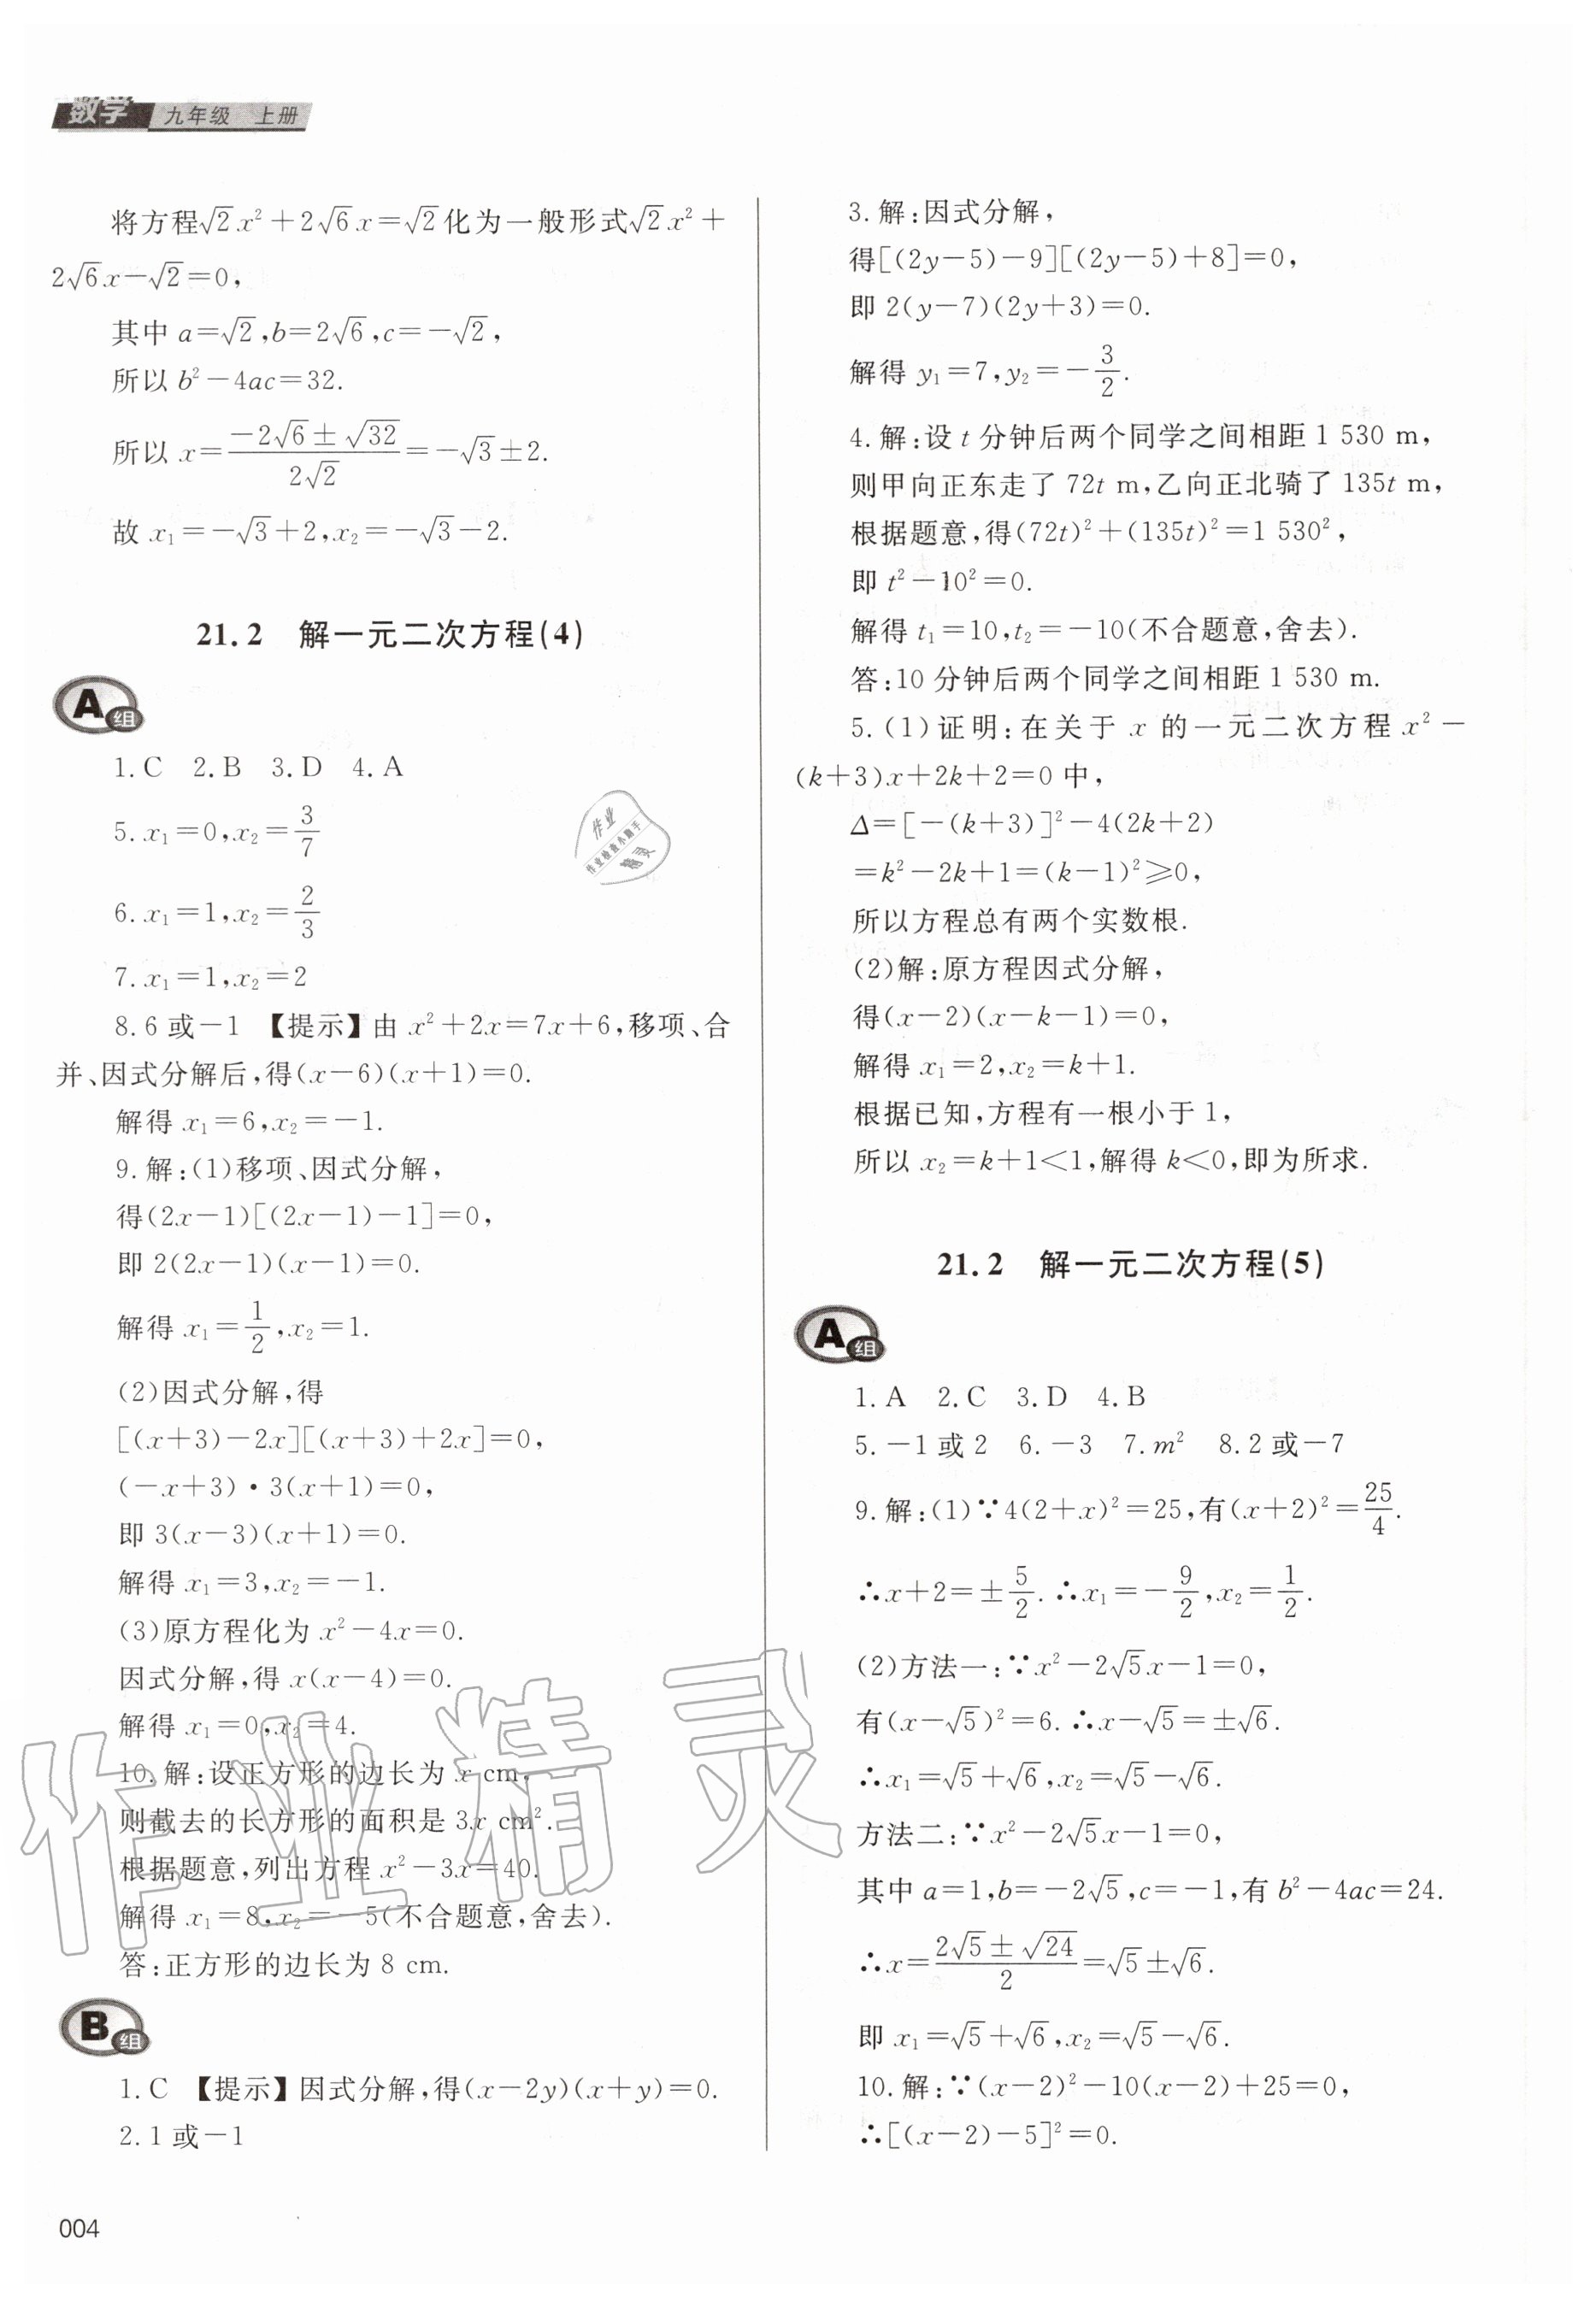 数学 九年级 上册
将方程√2x²+2√6x=√2化为一般形式√2x²+
2√6x-√2=0,
其中 a=√2,b=2√6,c=-√2,
所以 b²-4ac=32.
所以 x=(-2√6±√32)/(2√2)=-√3±2.
故 x₁=-√3+2,x₂=-√3-2.
21.2 解一元二次方程(4)
A组
1.C 2.B 3.D 4.A
5.x₁=0,x₂=3/7
6.x₁=1,x₂=2/3
7.x₁=1,x₂=2
8.6或-1 【提示】由 x²+2x=7x+6,移项、合
并、因式分解后,得(x-6)(x+1)=0.
解得 x₁=6,x₂=-1.
9.解:(1)移项、因式分解,
得(2x-1)[(2x-1)-1]=0,
即 2(2x-1)(x-1)=0.
解得 x₁=1/2,x₂=1.
(2)因式分解,得
[(x+3)-2x][(x+3)+2x]=0,
(-x+3)·3(x+1)=0,
即 3(x-3)(x+1)=0.
解得 x₁=3,x₂=-1.
(3)原方程化为 x²-4x=0.
因式分解,得 x(x-4)=0.
解得 x₁=0,x₂=4.
10.解:设正方形的边长为 x cm,
则截去的长方形的面积是 3x cm².
根据题意,列出方程 x²-3x=40.
解得 x₁=8,x₂=-5(不合题意,舍去).
答:正方形的边长为 8 cm.
B组
1.C 【提示】因式分解,得(x-2y)(x+y)=0.
2.1或-1
3.解:因式分解,
得[(2y-5)-9][(2y-5)+8]=0,
即 2(y-7)(2y+3)=0.
解得 y₁=7,y₂=-3/2.
4.解:设 t 分钟后两个同学之间相距 1 530 m,
则甲向正东走了 72t m,乙向正北骑了 135t m,
根据题意,得(72t)²+(135t)²=1 530²,
即 t²-10²=0.
解得 t₁=10,t₂=-10(不合题意,舍去).
答:10 分钟后两个同学之间相距 1 530 m.
5.(1)证明:在关于 x 的一元二次方程 x²-
(k+3)x+2k+2=0 中,
Δ=[-(k+3)]²-4(2k+2)
=k²-2k+1=(k-1)²≥0,
所以方程总有两个实数根.
(2)解:原方程因式分解,
得(x-2)(x-k-1)=0,
解得 x₁=2,x₂=k+1.
根据已知,方程有一根小于 1,
所以 x₂=k+1<1,解得 k<0,即为所求.
21.2 解一元二次方程(5)
A组
1.A 2.C 3.D 4.B
5.-1或2 6.-3 7.m² 8.2或-7
9.解:(1)∵4(2+x)²=25,有(x+2)²=25/4.
∴x+2=±5/2.∴x₁=-9/2,x₂=1/2.
(2)方法一:∵x²-2√5x-1=0,
有(x-√5)²=6.∴x-√5=±√6.
∴x₁=√5+√6,x₂=√5-√6.
方法二:∵x²-2√5x-1=0,
其中 a=1,b=-2√5,c=-1,有 b²-4ac=24.
∴x=(2√5±√24)/2=√5±√6.
即 x₁=√5+√6,x₂=√5-√6.
10.解:∵(x-2)²-10(x-2)+25=0,
∴[(x-2)-5]²=0.
004
作业
作业检查小助手
精灵
作业精灵